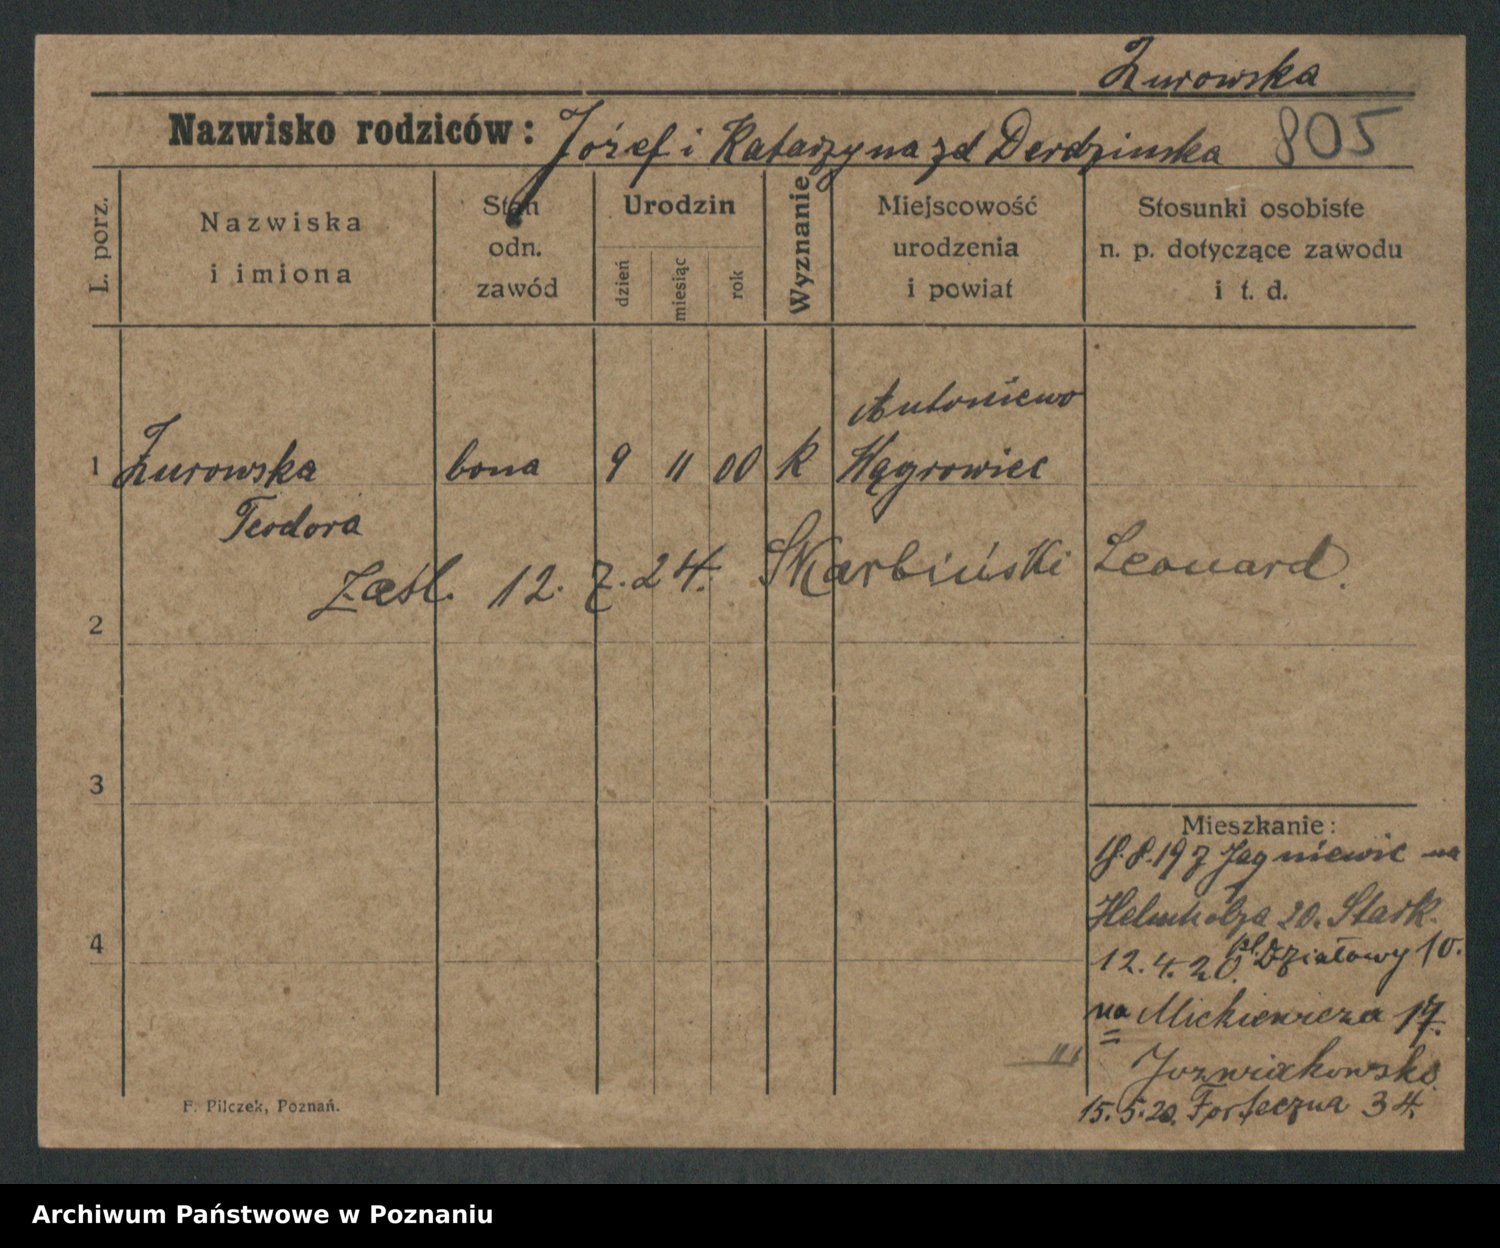 Żurowska
Nazwisko rodziców: Józef i Katarzyna zd Derdzinska 805
L. porz.
Nazwiska
i imiona
Stan
odn.
zawód
Urodzin
dzień
miesiąc
rok
Wyznanie
Miejscowość
urodzenia
i powiat
Stosunki osobiste
n. p. dotyczące zawodu
i t. d.
Antoniewo
1 Żurowska bona 9 11 00 k Wągrowiec
Teodora
Zaśl. 12. 7. 24. Skarbiński Leonard.
2
3
4
Mieszkanie:
na
20. Stark.
12. 4. 20. pl. Działowy 10.
na Mickiewicza 17.
15. 5. 20. Forteczna 34.
F. Pilczek, Poznań.
Archiwum Państwowe w Poznaniu